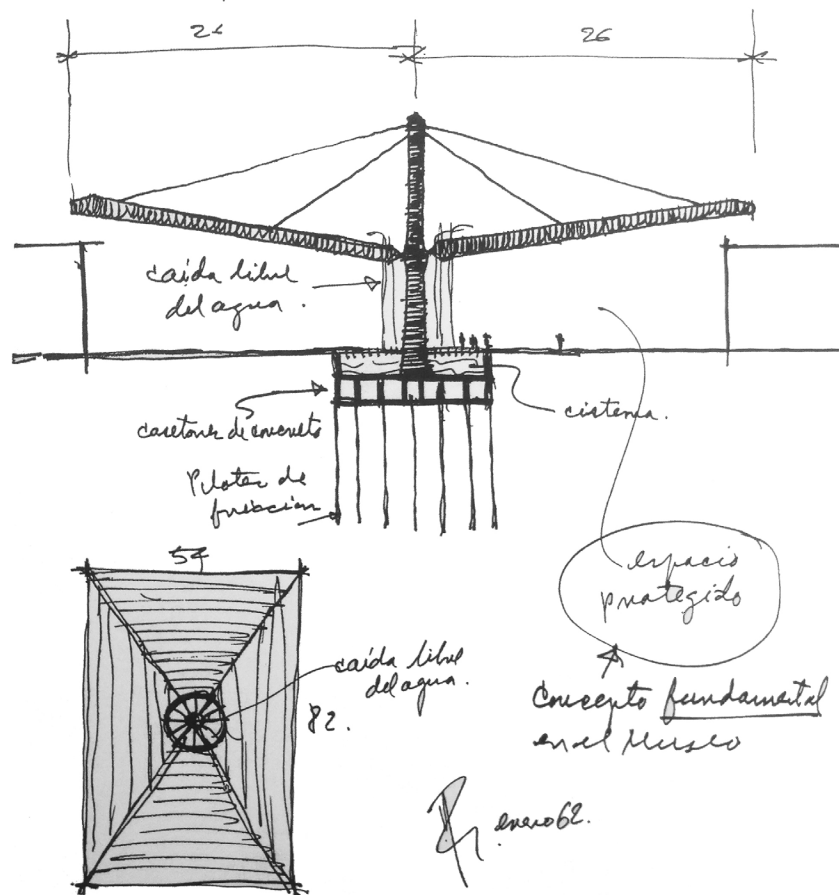 26
26
caída libre
del agua.
casetones de concreto
cisterna.
Pilotes de
fricción
54
espacio
protegido
caída libre
del agua.
82.
concepto fundamental
en el Museo
enero 62.